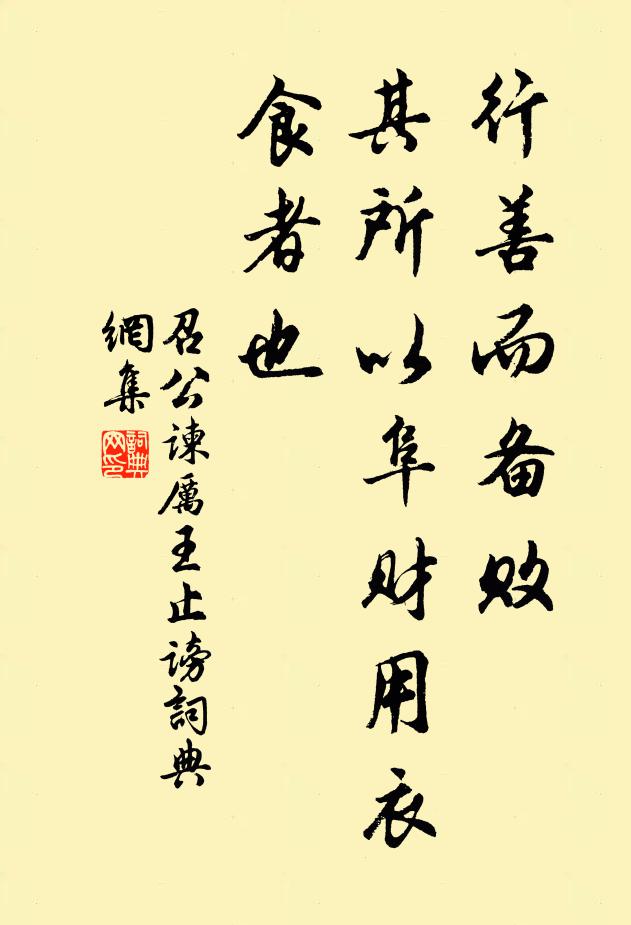 行善而备败
其所以阜财用衣
食者也
召公諫厲王止謗詞典
網集
詞典
网印